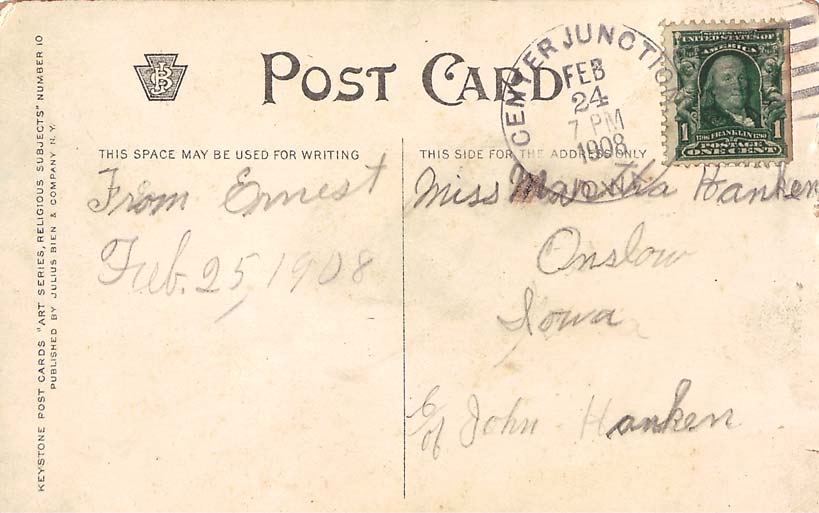 KEYSTONE POST CARDS "ART SERIES, RELIGIOUS SUBJECTS" NUMBER 10
PUBLISHED BY JULIUS BIEN & COMPANY N.Y.
POST CARD
CENTER JUNCTION
FEB
24
7 PM
1908
IOWA
SERIES 1902
UNITED STATES OF
AMERICA
1 1
1706 FRANKLIN 1790
POSTAGE
ONE CENT
THIS SPACE MAY BE USED FOR WRITING
From Ernest
Feb. 25, 1908
THIS SIDE FOR THE ADDRESS ONLY
Miss Martha Hanken
Onslow
Iowa
c/of John Hanken